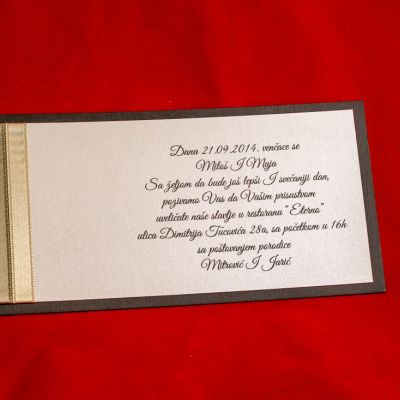 Dana 21.09.2014. venčace se
Miloš I Maja
Sa željom da bude još lepši I svečaniji dan,
pozivamo Vas da Vašim prisustvom
uveličate naše slavlje u restoranu "Eterno"
ulica Dimitrija Tucovića 28a, sa početkom u 16h
sa poštovanjem porodice
Mitrović I Jarić